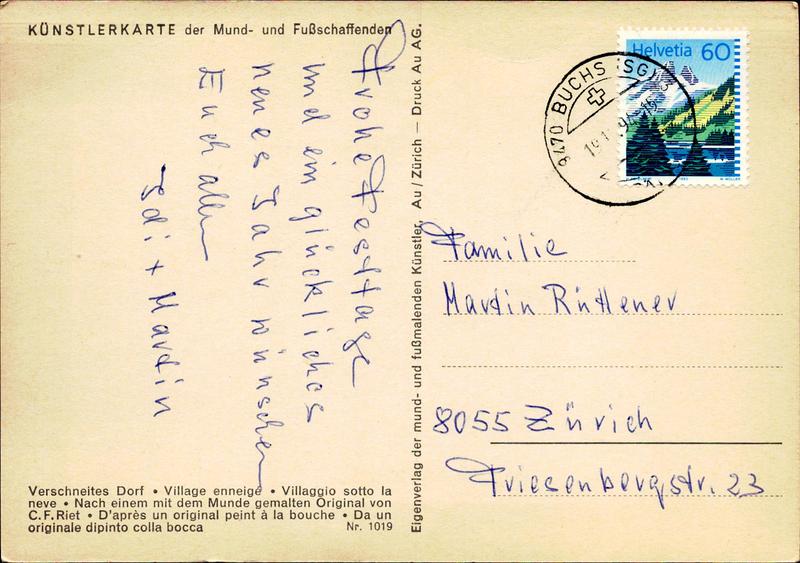 KÜNSTLERKARTE der Mund- und Fußschaffenden
Frohe Festtage
und ein glückliches
neues Jahr wünschen
Euch allen
Edi + Martin
Verschneites Dorf • Village enneigé • Villaggio sotto la
neve • Nach einem mit dem Munde gemalten Original von
C.F. Riet • D'après un original peint à la bouche • Da un
originale dipinto colla bocca Nr. 1019
Eigenverlag der mund- und fußmalenden Künstler, Au / Zürich — Druck Au AG.
Helvetia 60
9470 BUCHS (SG)
Familie
Martin Rüttener
8055 Zürich
Friesenbergstr. 23